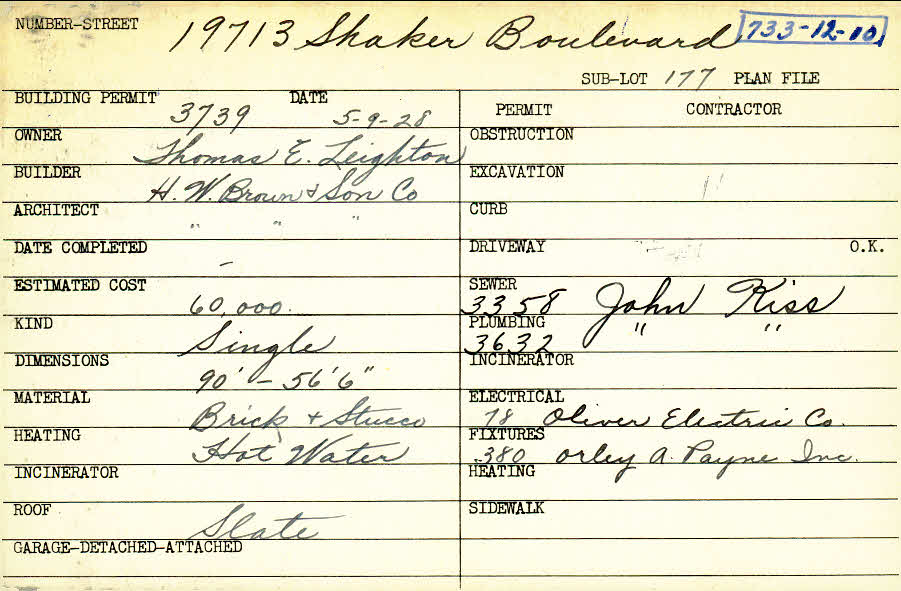 NUMBER-STREET 19713 Shaker Boulevard 733-12-10
SUB-LOT 177 PLAN FILE
BUILDING PERMIT 3739 DATE 5-9-28
OWNER Thomas E. Leighton
BUILDER H. W. Brown & Son Co
ARCHITECT " " "
DATE COMPLETED -
ESTIMATED COST 60,000.
KIND Single
DIMENSIONS 90' - 56'6"
MATERIAL Brick + Stucco
HEATING Hot Water
INCINERATOR
ROOF Slate
GARAGE-DETACHED-ATTACHED
PERMIT CONTRACTOR
OBSTRUCTION
EXCAVATION
CURB
DRIVEWAY O.K.
SEWER 3358 John Kiss
PLUMBING 3632 " "
INCINERATOR
ELECTRICAL 78 Oliver Electric Co.
FIXTURES 380 Orley A. Payne Inc.
HEATING
SIDEWALK